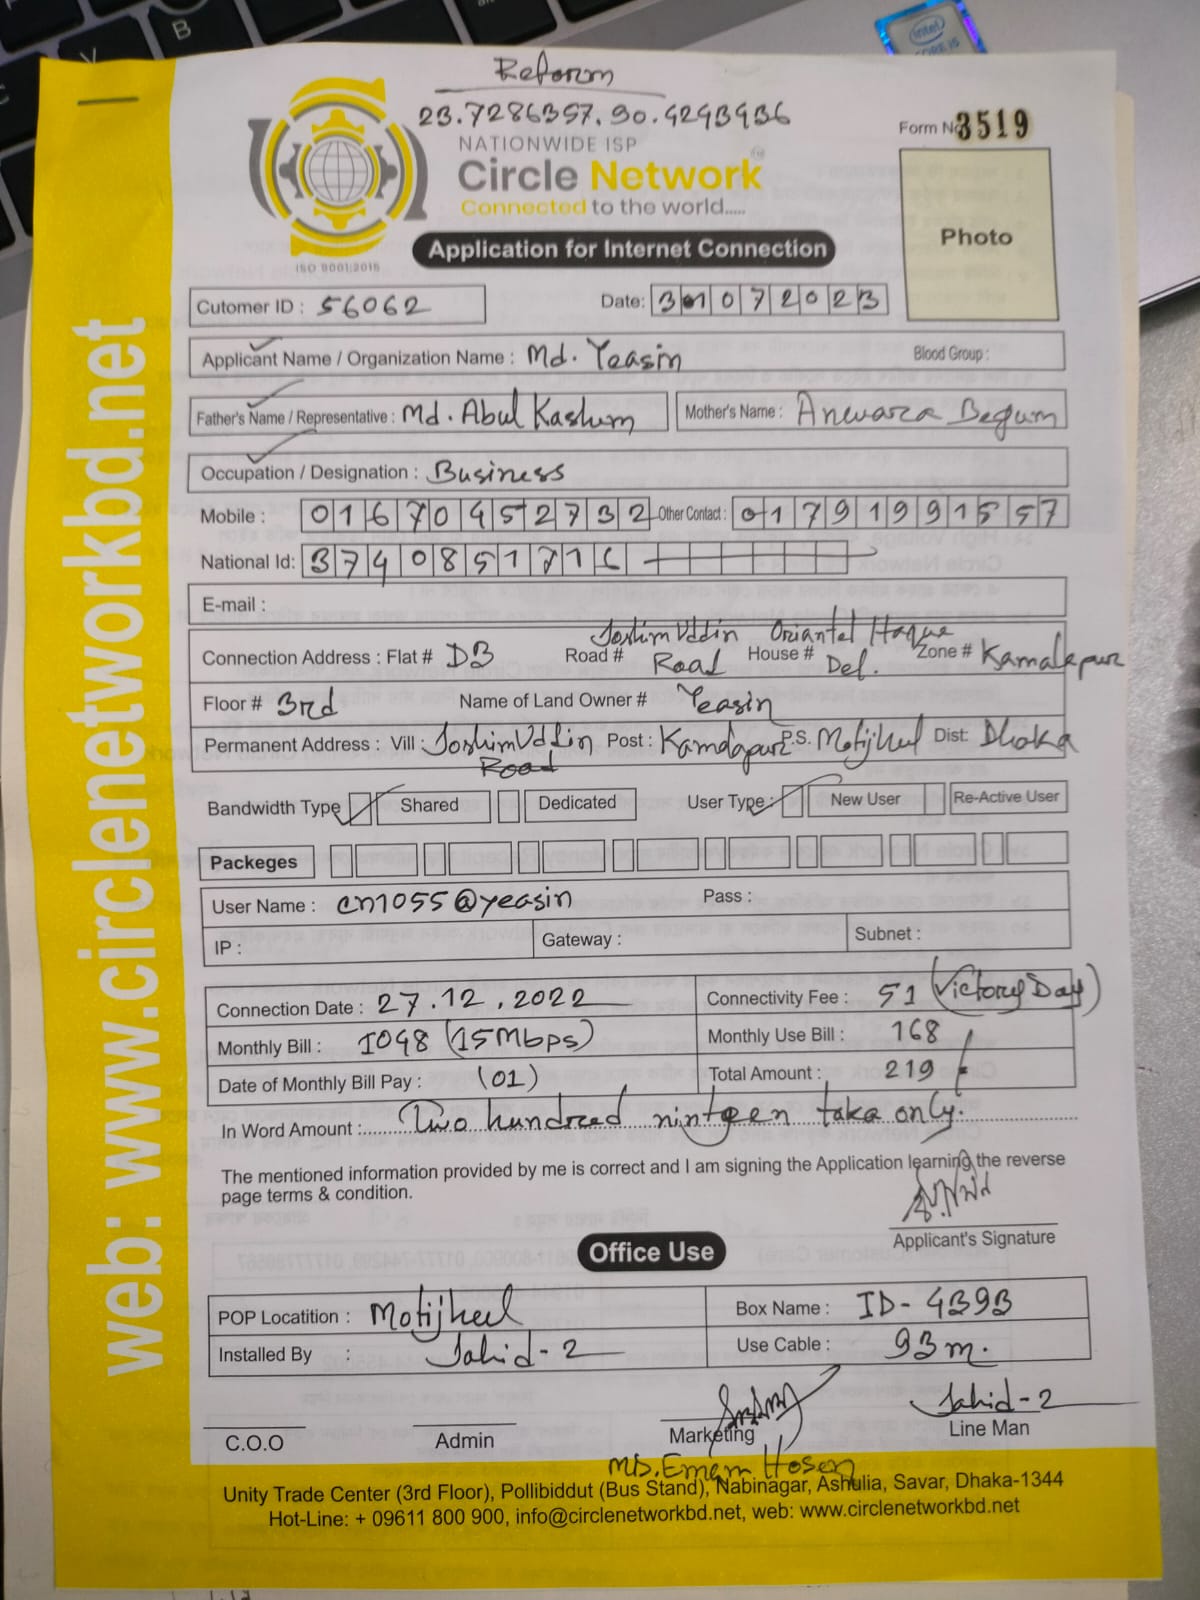 Reform
23.7286357, 90.4293936
NATIONWIDE ISP
Circle Network
Connected to the world.....
ISO 9001:2015
Form No 3519
Photo
Application for Internet Connection
Cutomer ID : 56062
Date: 31072023
Applicant Name / Organization Name : Md. Yeasin Blood Group :
Father's Name / Representative : Md. Abul Kashem Mother's Name : Anwara Begum
Occupation / Designation : Business
Mobile : 01670452732 Other Contact : 01791991557
National Id: 3740851716
E-mail :
JoshimUddin Oriantel Haque
Connection Address : Flat # D3 Road # Road House # Del. Zone # Kamalapur
Floor # 3rd Name of Land Owner # Yeasin
Permanent Address : Vill : JoshimUddin Post : Kamalapur P.S. Motijheel Dist: Dhaka
Road
Bandwidth Type Shared Dedicated User Type : New User Re-Active User
Packeges
User Name : cn1055@yeasin Pass :
IP : Gateway : Subnet :
Connection Date : 27.12.2022 Connectivity Fee : 51 (Victory Day)
Monthly Bill : 1048 (15Mbps) Monthly Use Bill : 168
Date of Monthly Bill Pay : (01) Total Amount : 219/
In Word Amount : Two hundred ninteen taka only.
The mentioned information provided by me is correct and I am signing the Application learning the reverse
page terms & condition.
Applicant's Signature
Office Use
POP Locatition : Motijheel Box Name : ID-4393
Installed By : Jahid-2 Use Cable : 93m.
Jahid-2
C.O.O Admin Marketing Line Man
MD. Emam Hosen
Unity Trade Center (3rd Floor), Pollibiddut (Bus Stand), Nabinagar, Ashulia, Savar, Dhaka-1344
Hot-Line: + 09611 800 900, info@circlenetworkbd.net, web: www.circlenetworkbd.net
web: www.circlenetworkbd.net